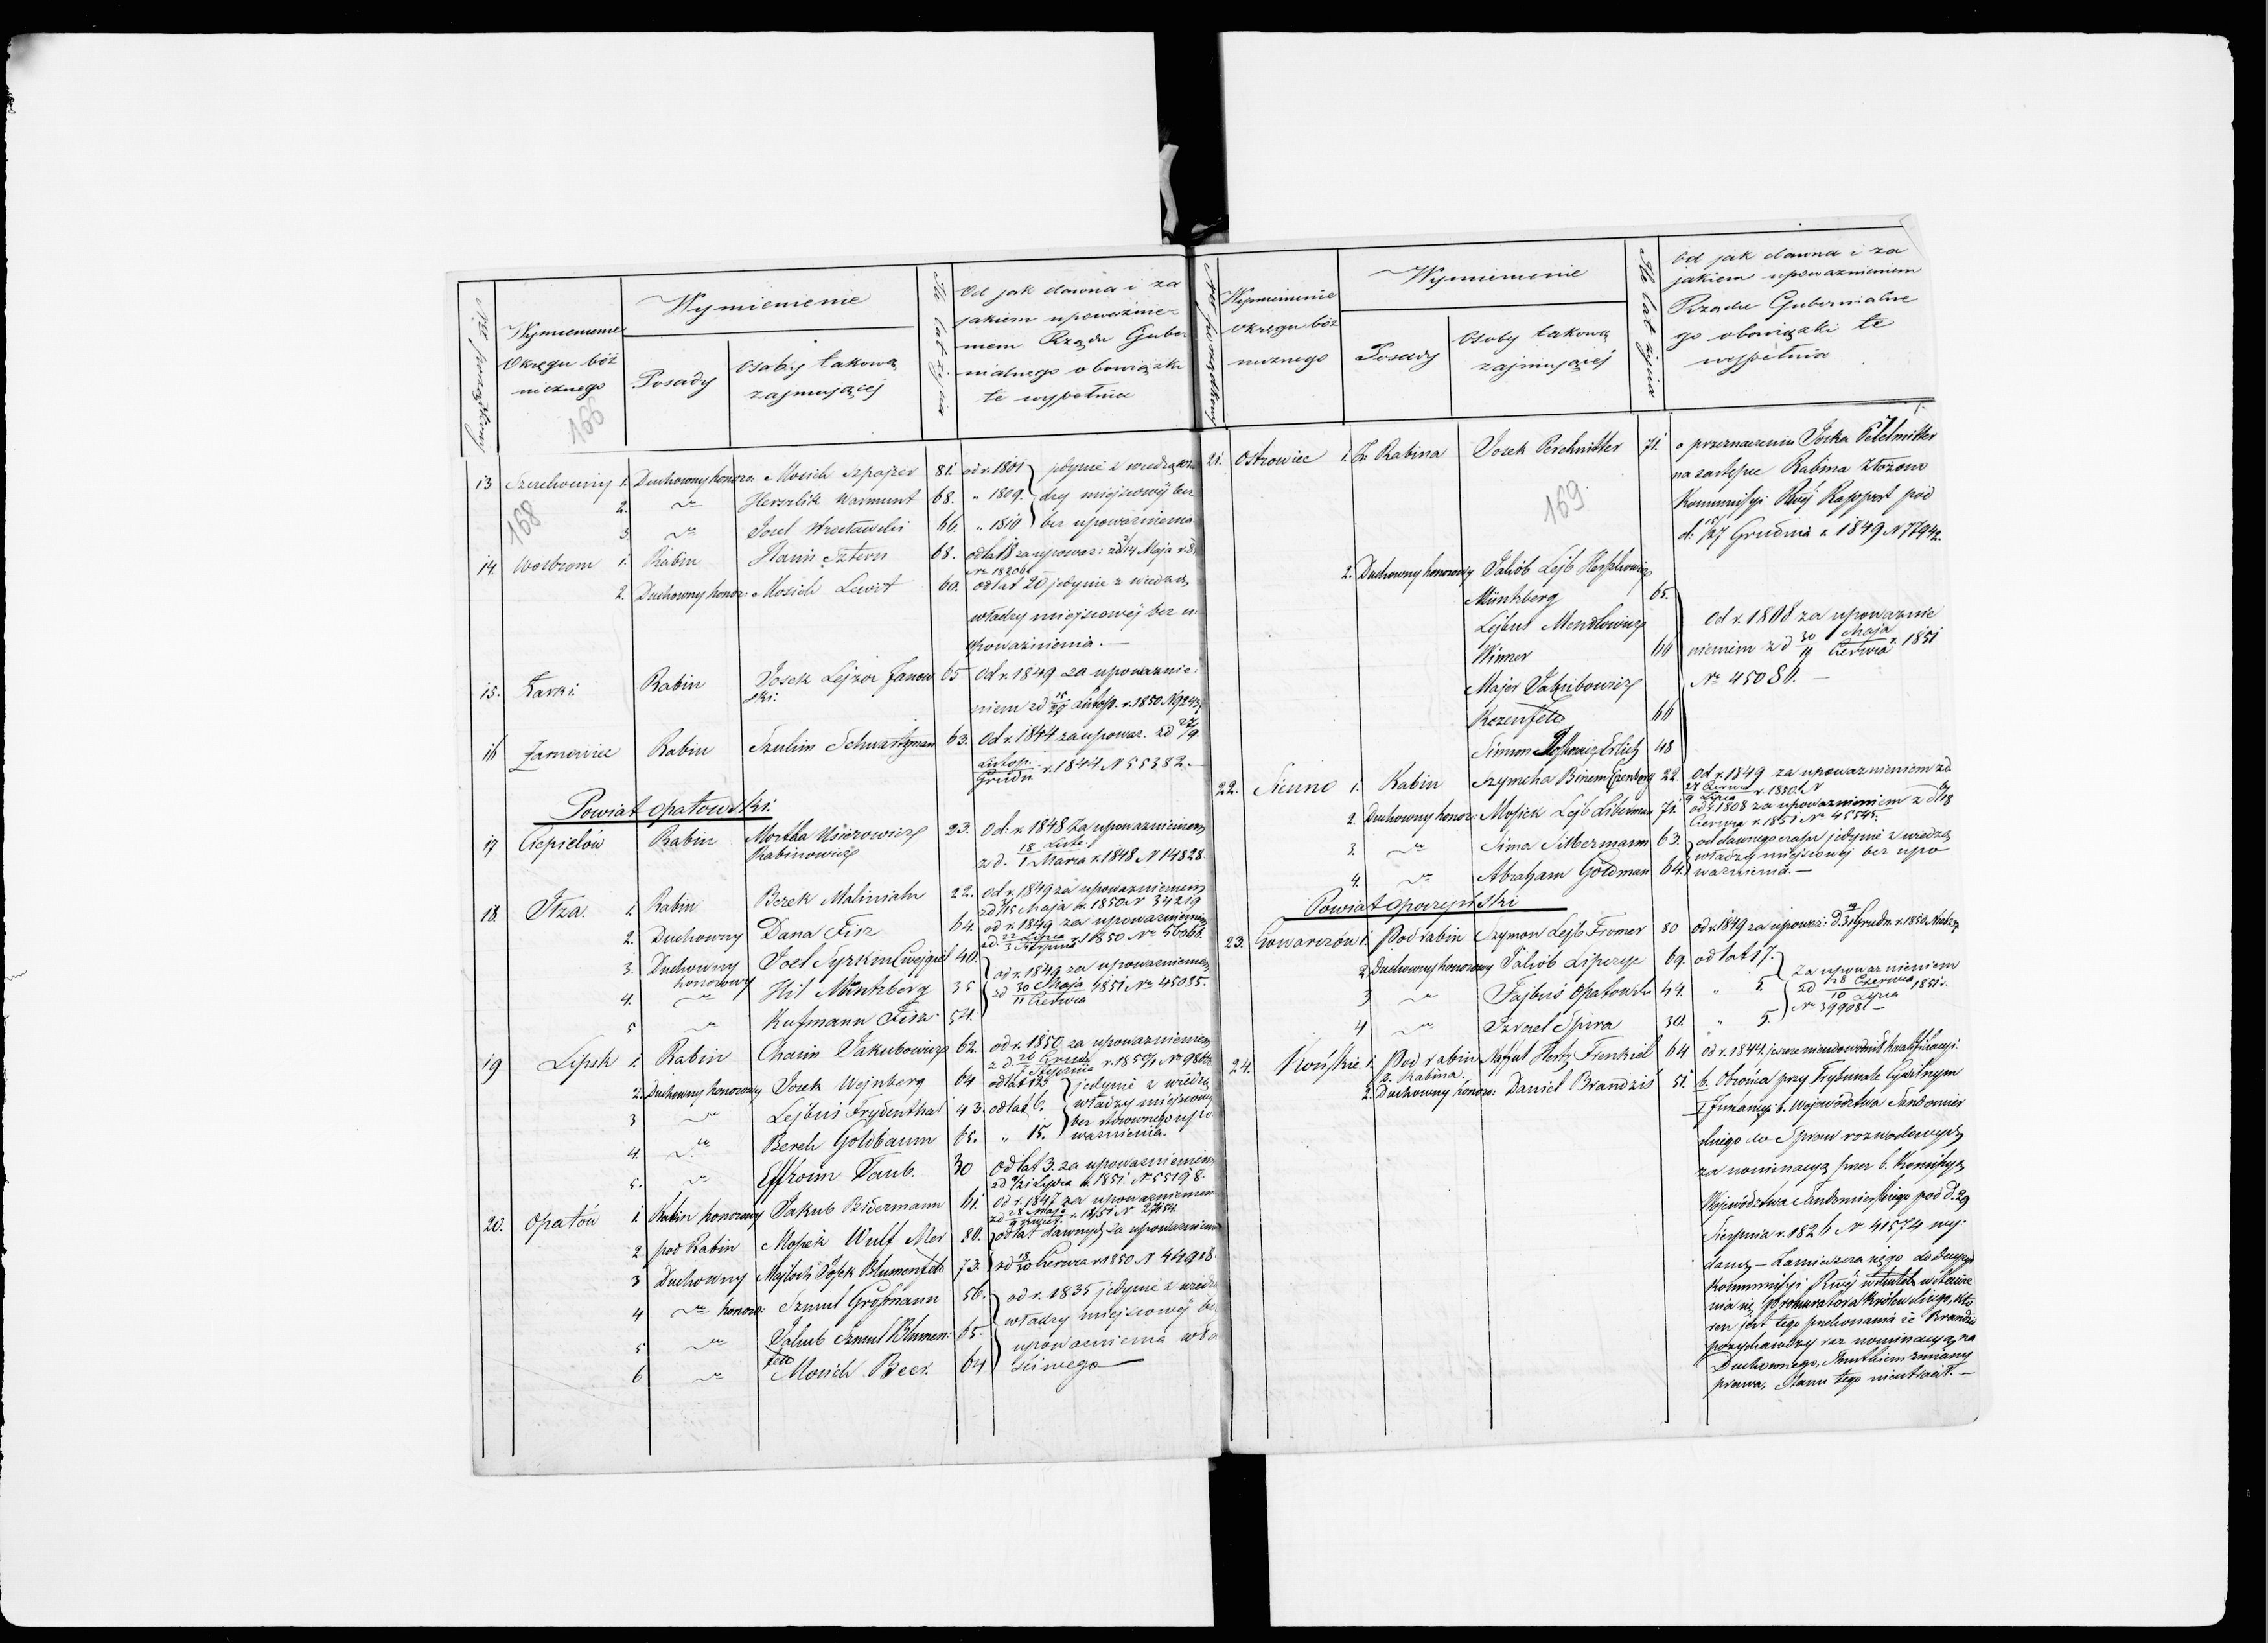 No porządkowy
Wymienienie Okręgu bóżniczego
Wymienienie
Posady
Osoby takową zajmującej
Ile lat życia
Od jak dawna i za
jakiem upoważnie=
niem Rządu Guber
nialnego obowiązki
te wypełnia
166
168
13 Szczekociny 1. Duchowny honoro: Mosiek Szpajzer 81. od r. 1801 jedynie z wiedzą wła
2. " Herszlik Warmunt 68. " 1809. dzy miejscowéj bez
3. " Josel Wrocławski 66. " 1810 bez upoważnienia
14 Wolbrom 1. Rabin Sztern 68. od lat 18 za upoważ: z d 2/14 Maja
No 18206
2. Duchowny honor: Mosiek Lewit 60. od lat 20 jedynie z wiedzą
władzy miejscowéj bez u
poważnienia. —
15. Żarki Rabin Josek Lejzor Janow 65 Od r. 1849 za upoważnie:
ski: niem z d 15/27 Listop. r. 1850 N 9243
16 Żarnowiec Rabin Szulim Schwartzman 63. Od r. 1844 za upoważ. z d 27/9
Listop./Grudn r. 1844 N 55382. —
Powiat Opatowski.
17 Ciepielów Rabin Mortka 23. Od. r. 1848 Za upoważnieniem
Rabinowicz z d. 18 Lute./1 Marca r. 1848 N 14828.
18. Iłża. 1. Rabin Berek Maliniak 22. Od r. 1849 za upoważnieniem
z d 3/15 Maja r. 1850 N 34219
2. Duchowny Dana Fisz 64. od r. 1849 za upoważnieniem
z d. 22 Lipca/3 Sierpnia r. 1850 No 56061.
3. Duchowny honorowy Joel Syrkin 40. od r. 1849 za upoważnieniem
4. " Hil Müntzberg 35 z d 30 Maja/11 Czerwca 1851 No 45085.
5 " Kufmann Fisz 54.
19 Lipsk 1. Rabin Chaim Jakubowicz 62. od r. 1850 za upoważnieniem
z d. 26 Grud./7 Stycznia r. 1850/1 No
2. Duchowny honorowy Josek Wejnberg 64 od lat 25 jedynie z wiedzą
3 " Lejbuś Frydenthal 43. od lat 6. władzy miejscowej
4. " Berek Goldbaum 65. " 15. bez stosownego upo
ważnienia.
5. " Effroim Taub. 30 Od lat 3. za upoważnieniem
z d 9/21 Lipca r. 1851. N 55198.
20. Opatów 1. Rabin honorowy Jakub Bidermann 61. Od r. 1847 za upoważnieniem
2. pod Rabin Mosiek Wulf Mer 80. od lat dawnych Za upoważnieniem
3 Duchowny Majloch Josek Blumenfeld 73. z d 18/30 Czerwca r. 1850 N 44918.
4 " honoro: Szmul Grossmann 56. od r. 1835 jedynie z wiedzą
5 " Jakub Szmul Blumen: 65. władzy miejscowéj bez
feld upoważnienia wła
6 " Mosiek Beer. 64 ściwego —
No porządkowy
Wymienienie okręgu bóżniczego
Wymienienie
Posady
Osoby takową zajmującej
Ile lat życia
Od jak dawna i za
jakiem upoważnieniem
Rządu Gubernialne
go obowiązki te
wypełnia
169.
21. Ostrowiec 1. Z: Rabina Josek 71. o przeznaczeniu Joska
na zastępce Rabina złożono
Kommissyi Rząj Rapport pod
d. 15/27 Grudnia r. 1849 N 77942.
2. Duchowny honorowy Jakób Lejb Herszkowicz
Müntzberg 65.
Lejbuś Mendlowicz Od r. 1808 za upoważnie
Winner 66 nieniem z d 30 Maja/11 Czerwca r. 1851
Majer Jakubowicz No 45086. —
Rozenfeld 66
Simon Erlich 48
22. Sienno 1. Rabin Szymcha Binem Erenberg 22. Od r. 1849 za upoważnieniem z d.
27 Czerwca/9 Lipca r. 1850. N
2. Duchowny honor: Mosiek Lejb Liberman 71. od r. 1808 za upoważnieniem z d 6/18
Czerwca r. 1851 No 45545.
3. " Sima Silbermann 63. od dawnego czasu jedynie z wiedzą
władzy miejscowéj bez upo
4. " Abraham Goldman 64. ważnienia. —
Powiat Opoczyński
23. Gowarczów 1. Pod rabin Szymon Lejb Fromer 80 od r. 1849 za upoważ: d. 19/31 Grudn. r. 1850
2 Duchowny honorowy Jakób Lipszyc 69. od lat 17.
3 " Fajbuś Opatowski 44. " 5. Za upoważnieniem
z d 28 Czerwca/10 Lipca 1851 r.
4 " Izrael Spira 30. " 5. No 39908. —
24. Końskie 1. Pod rabin Naftul Hertz Frenkiel 64 od r. 1844. jeszcze nieudowodnił kwalifikacyi.
z. Rabina.
2. Duchowny honoro: Daniel Brandziś 51. b. Obrońca przy Trybunale Cywilnym
I Instancyi b. Województwa Sandomier
skiego do Spraw rozwodowych
za nominacyą przez b. Komissyą
Województwa Sandomierskiego pod d. 29
Sierpnia r. 1826 No 41574 wy:
daną — Zamieszcza się go do decyzyi
Kommissyi Rząj wskutek wstawie
nia się Prokuratora Królewskiego, któ
ren jest tego przekonania że Brandziś
pozyskawszy raz nominacyą na
Duchownego, skutkiem zmiany
prawa, stanu tego nieutracił. —